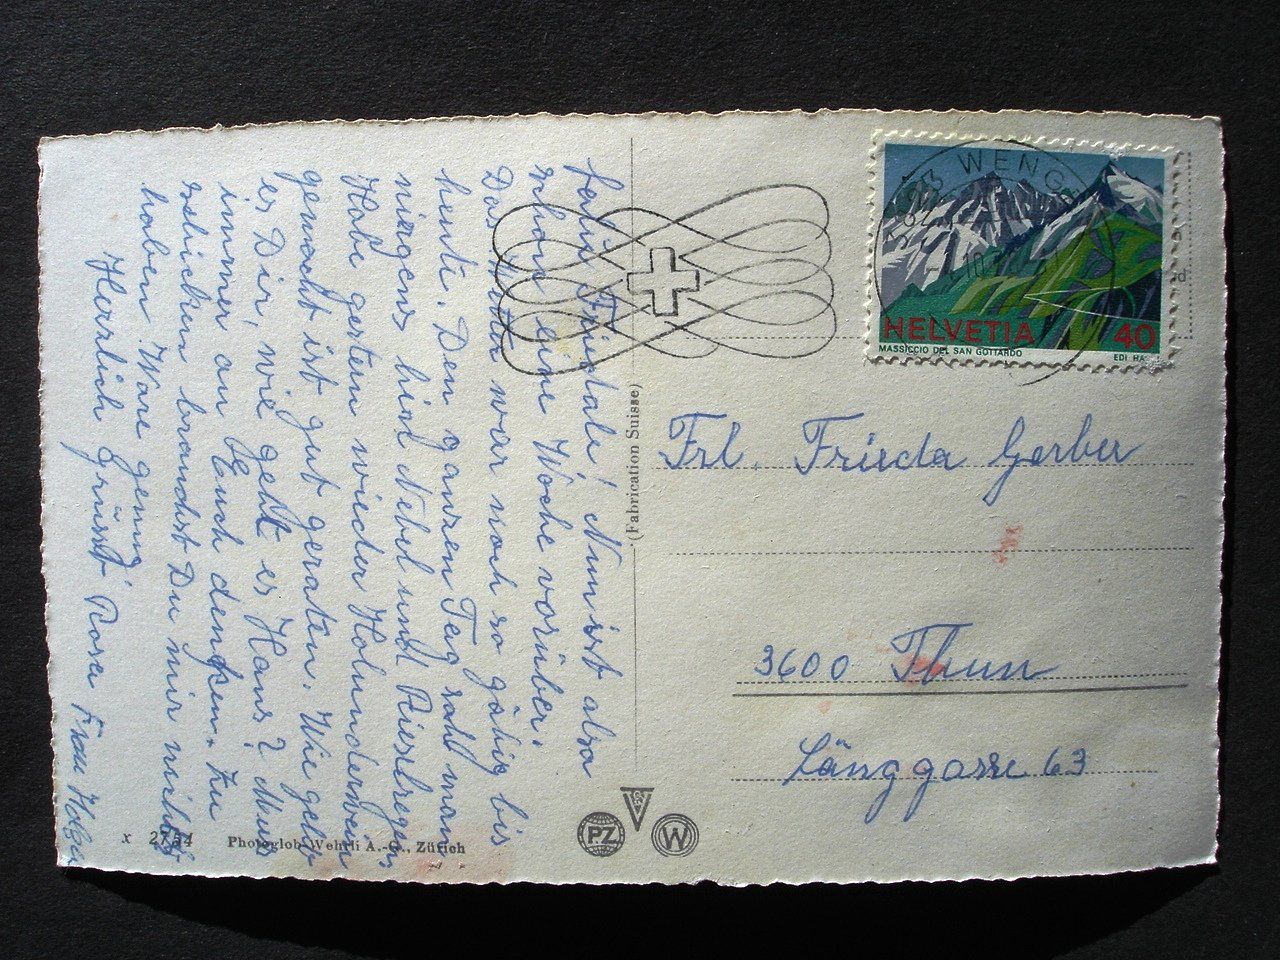 Nun ist also
schon eine Woche vorüber.
Das Wetter war noch so gäbig bis
heute. Den ganzen Tag sah man
nirgens hin! Nebel und Rieselregen
Habe gestern wieder Holunderwein
gemacht ist gut geraten. Wie geht
es Dir, wie geht es Hans? Muss
immer an Euch denken. Zu
schicken brauchst Du mir nichts
haben Ware genug.
Herzlich grüsst Rosa
Frau
x 2754 Photoglob-Wehrli A.-G., Zürich
(Fabrication Suisse)
PZ
W
WENG
HELVETIA 40
MASSICCIO DEL SAN GOTTARDO
EDI HA
Frl. Frieda Gerber
3600 Thun
Länggasse 63